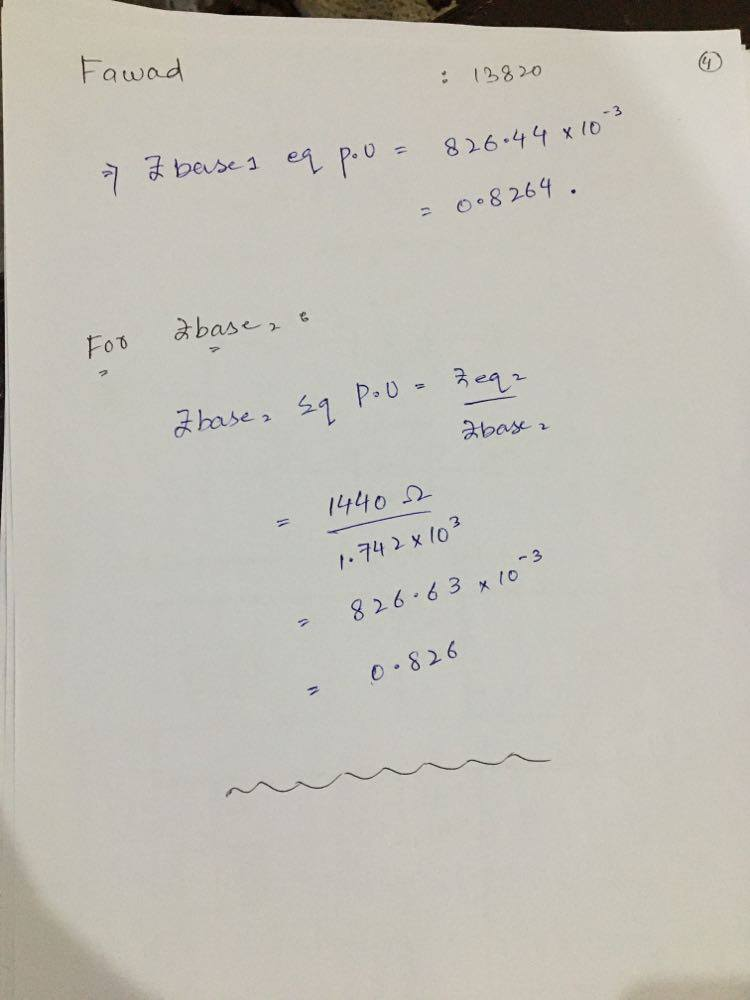 Fawad : 13820 4
⇒ Zbase1 eq p.U = 826.44 × 10⁻³
= 0.8264 .
For Zbase₂ :
Zbase₂ Eq P.U = Zeq₂
Zbase₂
= 1440 Ω
1.742 × 10³
= 826.63 × 10⁻³
= 0.826